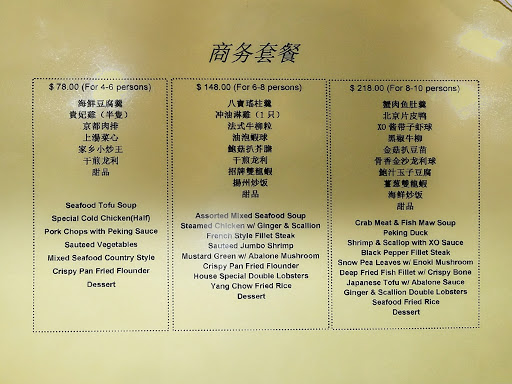 商务套餐
$ 78.00 (For 4-6 persons)
海鮮豆腐羹
貴妃雞（半隻）
京都肉排
上湯菜心
家乡小炒王
干煎龙利
甜品
Seafood Tofu Soup
Special Cold Chicken(Half)
Pork Chops with Peking Sauce
Sauteed Vegetables
Mixed Seafood Country Style
Crispy Pan Fried Flounder
Dessert
$ 148.00 (For 6-8 persons)
八寶瑤柱羹
冲油淋雞（1 只）
法式牛柳粒
油泡蝦球
鮑菇扒芥膽
干煎龙利
招牌雙龍蝦
揚州炒饭
甜品
Assorted Mixed Seafood Soup
Steamed Chicken w/ Ginger & Scallion
French Style Fillet Steak
Sauteed Jumbo Shrimp
Mustard Green w/ Abalone Mushroom
Crispy Pan Fried Flounder
House Special Double Lobsters
Yang Chow Fried Rice
Dessert
$ 218.00 (For 8-10 persons)
蟹肉鱼肚羹
北京片皮鸭
XO 酱带子虾球
黑椒牛柳
金菇扒豆苗
骨香金沙龙利球
鮑汁玉子豆腐
薑葱雙龍蝦
海鲜炒饭
甜品
Crab Meat & Fish Maw Soup
Peking Duck
Shrimp & Scallop with XO Sauce
Black Pepper Fillet Steak
Snow Pea Leaves w/ Enoki Mushroom
Deep Fried Fish Fillet w/ Crispy Bone
Japanese Tofu w/ Abalone Sauce
Ginger & Scallion Double Lobsters
Seafood Fried Rice
Dessert